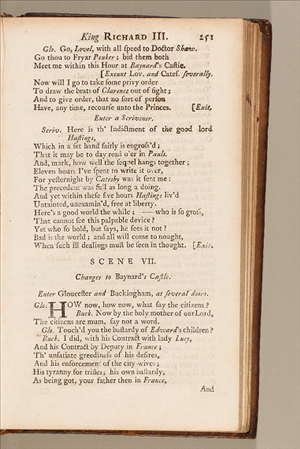 King RICHARD III. 251
Glo. Go, Lovel, with all speed to Doctor Shaw.
Go thou to Fryar Peuker; bid them both
Meet me within this Hour at Baynard's Castle.
[Exeunt Lov. and Cates. severally.
Now will I go to take some privy order
To draw the brats of Clarence out of sight;
And to give order, that no sort of person
Have, any time, recourse unto the Princes. [Exit.
Enter a Scrivener.
Scriv. Here is th' Indictment of the good lord
Hastings,
Which in a set hand fairly is engross'd;
That it may be to day read o'er in Pauls.
And, mark, how well the sequel hangs together;
Eleven hours I've spent to write it over,
For yesternight by Catesby was it sent me:
The precedent was full as long a doing.
And yet within these five hours Hastings liv'd
Untainted, unexamin'd, free at liberty.
Here's a good world the while; ——who is so gross,
That cannot see this palpable device?
Yet who so bold, but says, he sees it not?
Bad is the world; and all will come to nought,
When such ill dealings must be seen in thought. [Exit.
SCENE VII.
Changes to Baynard's Castle.
Enter Gloucester and Buckingham, at several doors.
Glo. HOW now, how now, what say the citizens?
Buck. Now by the holy mother of our Lord,
The citizens are mum, say not a word.
Glo. Touch'd you the bastardy of Edward's children?
Buck. I did, with his Contract with lady Lucy,
And his Contract by Deputy in France;
Th' unsatiate greediness of his desires,
And his enforcement of the city-wives;
His tyranny for trifles; his own bastardy,
As being got, your father then in France,
And